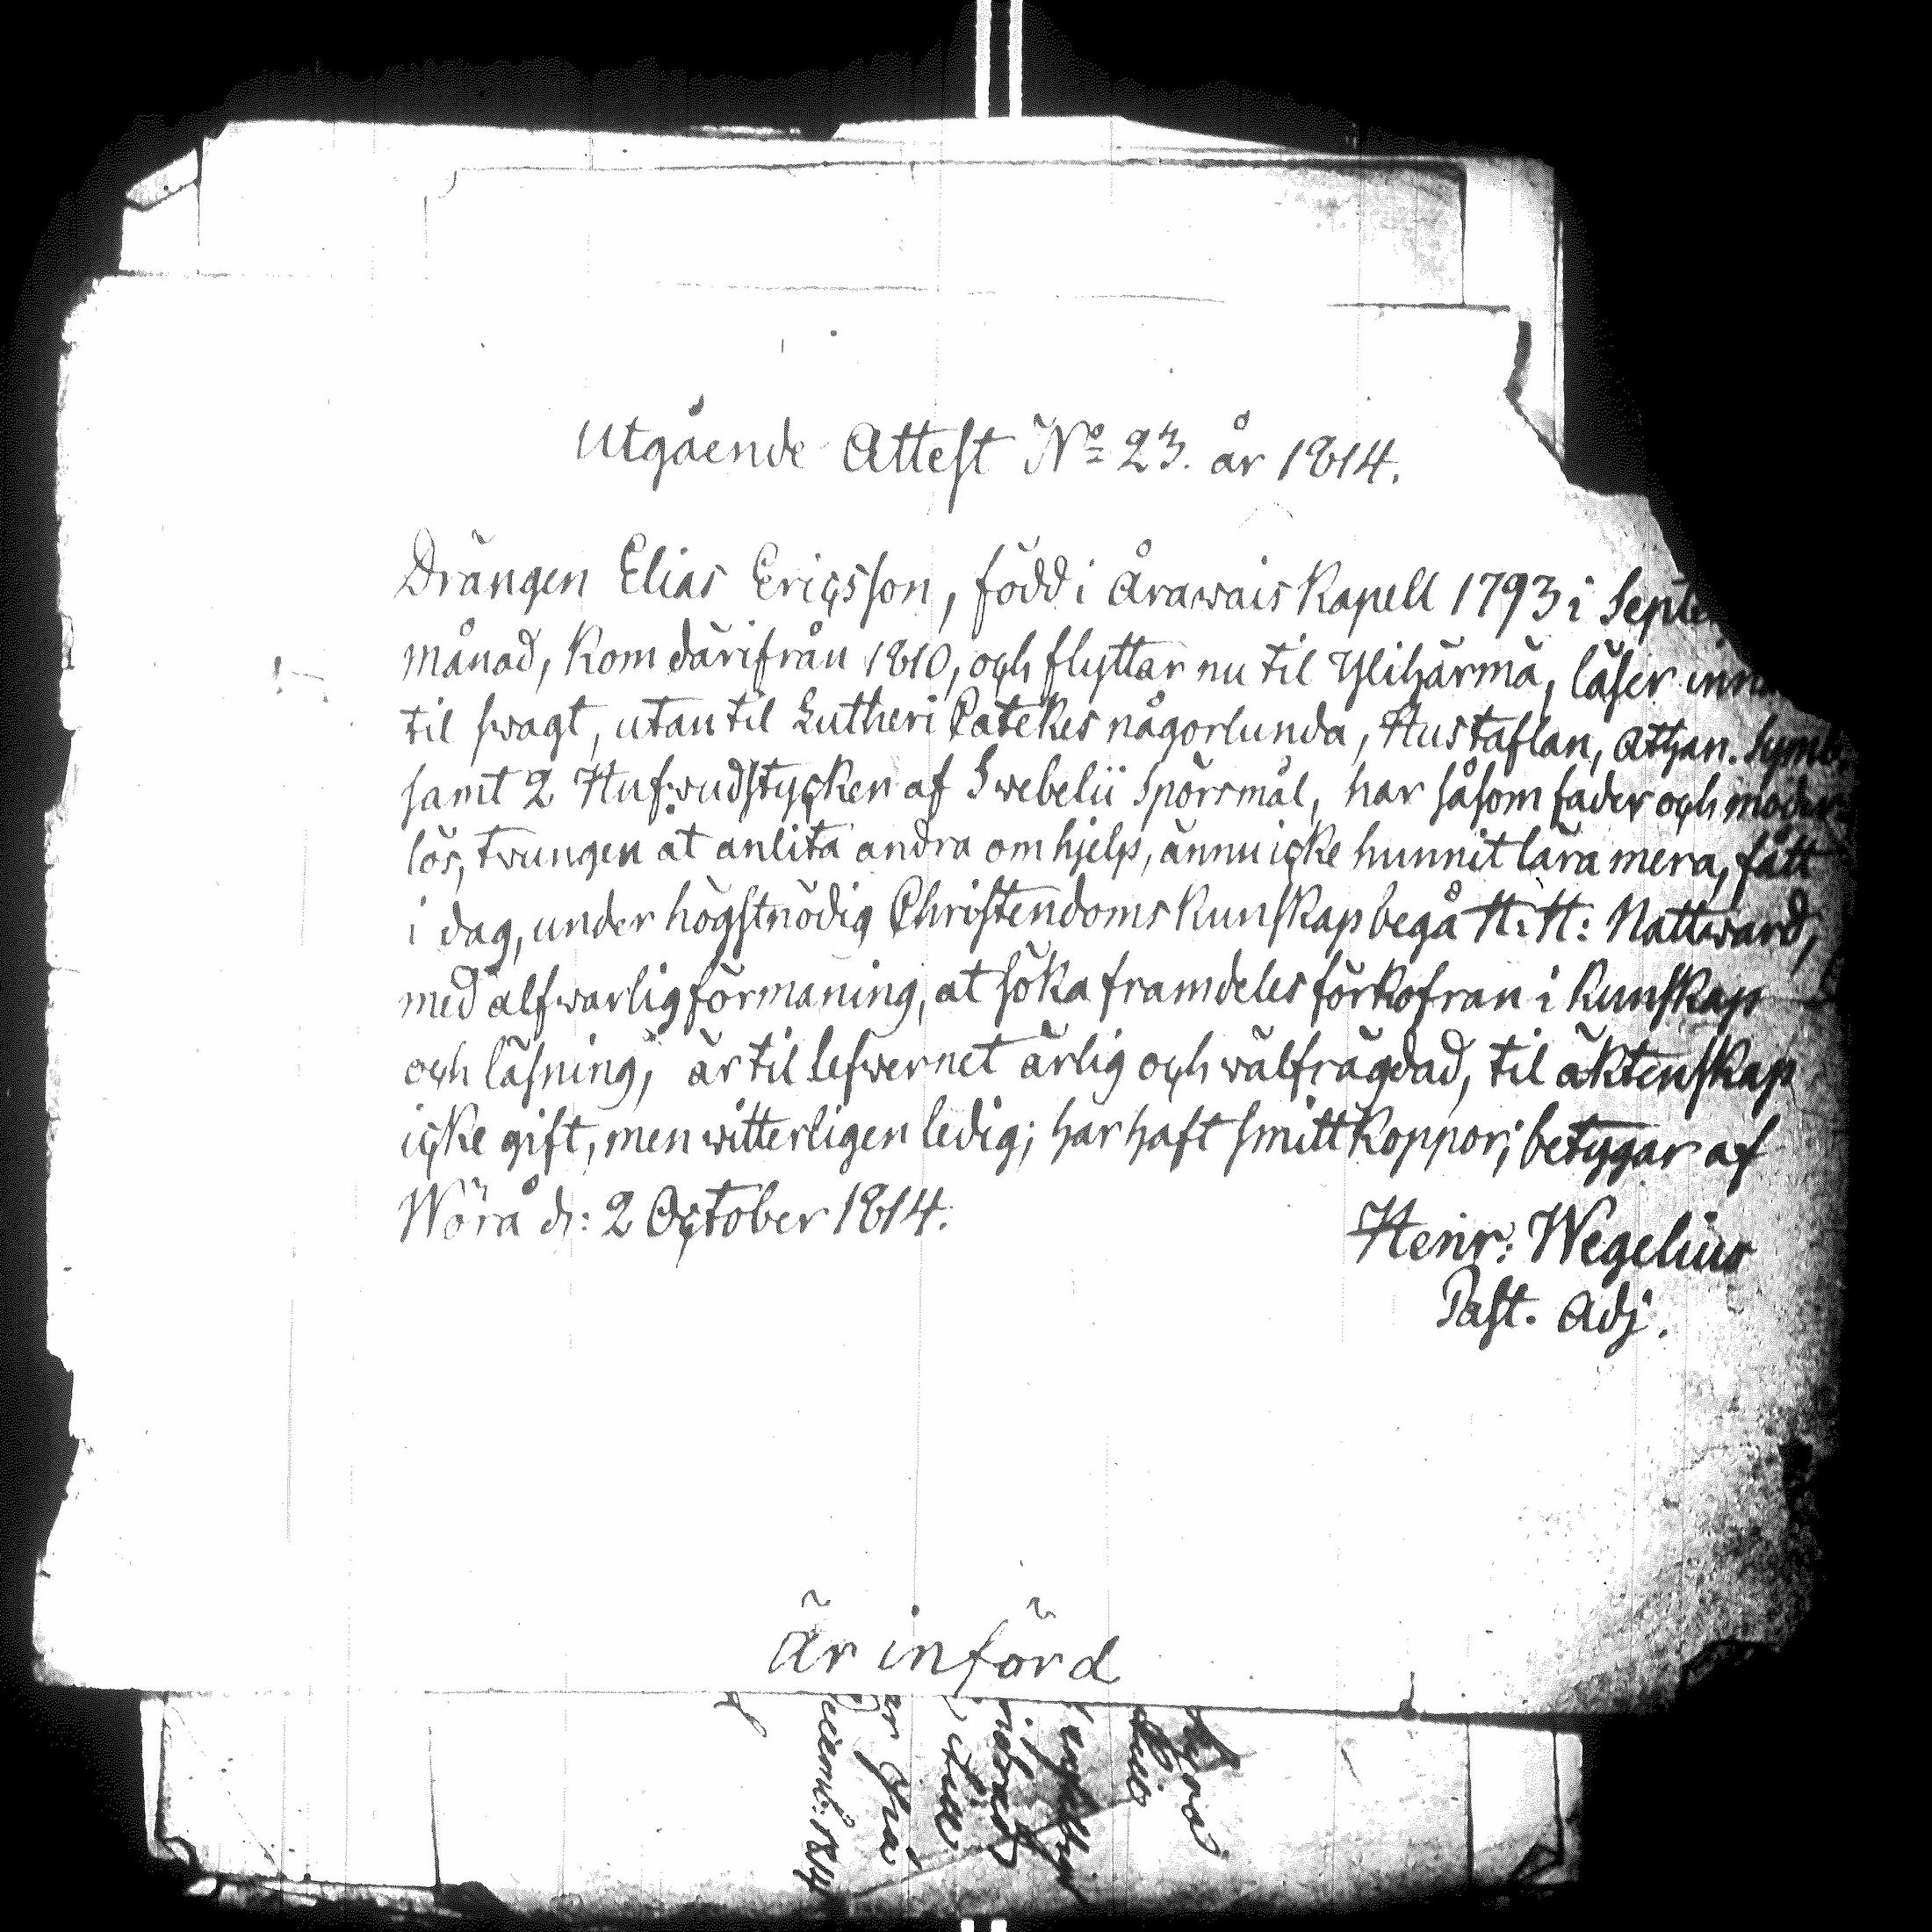 Utgående Attest No 23. år 1814.
Drängen Elias Ericsson, född i Årawais Kapell 1793 i Septe
månad, kom därifrån 1810, och flyttar nu til Ylihärmä, läser inn
til swagt, utantil Lutheri Catekes någorlunda, Hustaflan, Athan. Symb.
samt 2 Hufwudstycken af Swebelii Spörsmål, har såsom fader och moder
lös, twungen at anlita andra om hjelp, ännu icke hunnit lära mera, fått
i dag, under högstnödig Christendoms Kunskap begå H: H: Nattward,
med alfwarlig förmaning, at söka framdeles förkofran i Kunskap
och läsning; är til lefwernet ärlig och wälfrägdad, til äktenskap
icke gift, men witterligen ledig; har haft smittkoppor; betygar af
Wörå d: 2 October 1814.
Henr: Wegelius
Past. Adj.
Är införd